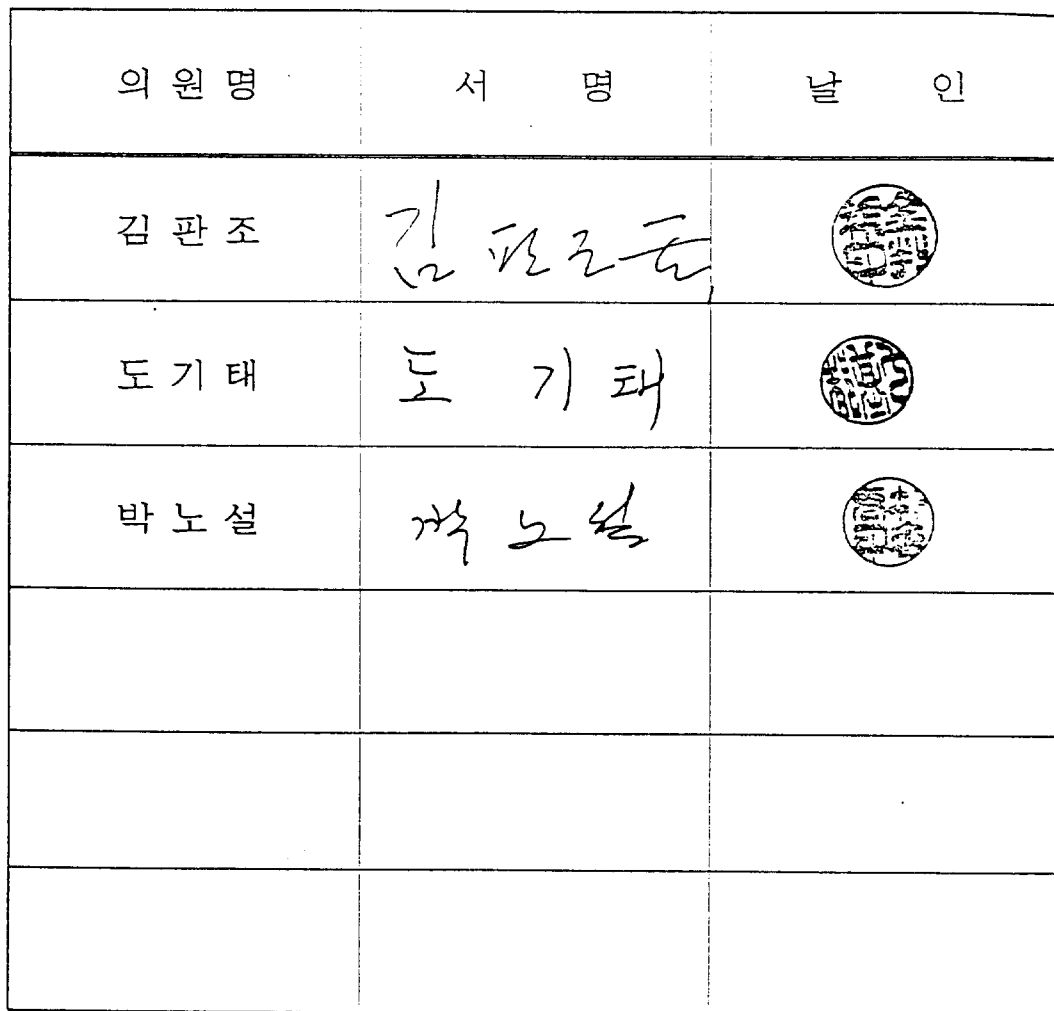 의 원 명 서 명 날 인
김 판 조 김 판 조
도 기 태 도 기 태
박 노 설 박 노 설